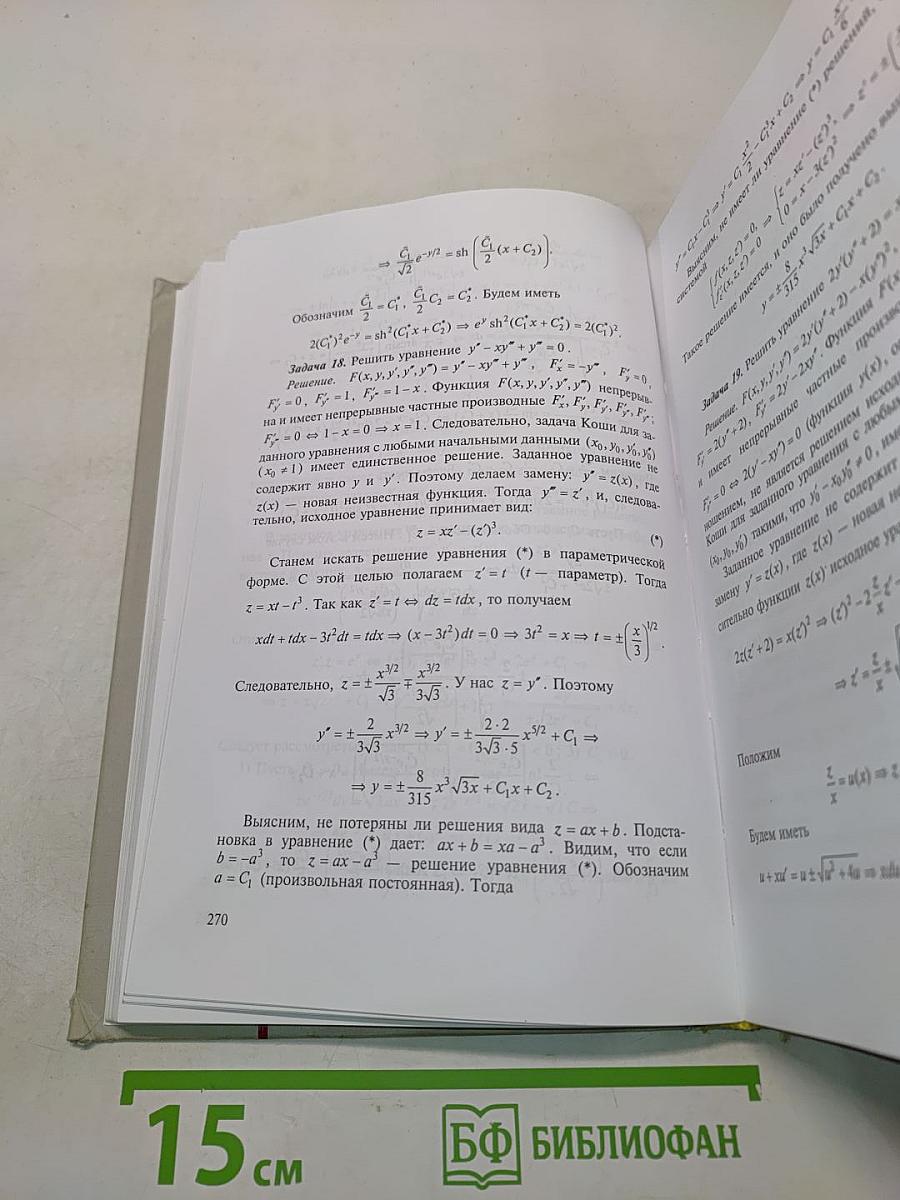 ⇒ C̃₁/√2 e^(−y/2) = sh (C̃₁/2 (x + C₂)).
Обозначим C̃₁/2 = C₁*, C̃₁/2 C₂ = C₂*. Будем иметь
2(C₁*)²e^(−y) = sh²(C₁*x + C₂*) ⇒ e^y sh²(C₁*x + C₂*) = 2(C₁*)².
Задача 18. Решить уравнение y″ − xy‴ + y‴ = 0.
Решение. F(x, y, y′, y″, y‴) = y″ − xy‴ + y‴, F′x = −y‴, F′y = 0,
F′y′ = 0, F′y″ = 1, F′y‴ = 1 − x. Функция F(x, y, y′, y″, y‴) непрерыв-
на и имеет непрерывные частные производные F′x, F′y, F′y′, F′y″, F′y‴;
F′y‴ = 0 ⇔ 1 − x = 0 ⇒ x = 1. Следовательно, задача Коши для за-
данного уравнения с любыми начальными данными (x₀, y₀, y′₀, y″₀)
(x₀ ≠ 1) имеет единственное решение. Заданное уравнение не
содержит явно y и y′. Поэтому делаем замену: y″ = z(x), где
z(x) — новая неизвестная функция. Тогда y‴ = z′, и, следова-
тельно, исходное уравнение принимает вид:
z = xz′ − (z′)³. (*)
Станем искать решение уравнения (*) в параметрической
форме. С этой целью полагаем z′ = t (t — параметр). Тогда
z = xt − t³. Так как z′ = t ⇔ dz = tdx, то получаем
xdt + tdx − 3t²dt = tdx ⇒ (x − 3t²)dt = 0 ⇒ 3t² = x ⇒ t = ±(x/3)^(1/2).
Следовательно, z = ± x^(3/2)/√3 ∓ x^(3/2)/(3√3). У нас z = y″. Поэтому
y″ = ± 2/(3√3) x^(3/2) ⇒ y′ = ± (2·2)/(3√3·5) x^(5/2) + C₁ ⇒
⇒ y = ± 8/315 x³√3x + C₁x + C₂.
Выясним, не потеряны ли решения вида z = ax + b. Подста-
новка в уравнение (*) дает: ax + b = xa − a³. Видим, что если
b = −a³, то z = ax − a³ — решение уравнения (*). Обозначим
a = C₁ (произвольная постоянная). Тогда
270
y″ = C₁x − C₁³ ⇒ y′ = C₁ x²/2 − C₁³x + C₂ ⇒ y = C₁ x³/6
Выясним, не имеет ли уравнение (*) решений,
системой
{f(x, z, z′) = 0, f′z′(x, z, z′) = 0 ⇒ {z = xz′ − (z′)³, 0 = x − 3(z′)² ⇒ z′ = ±
Такое решение имеется, и оно было получено
y = ± 8/315 x³√3x + C₁x + C₂.
Задача 19. Решить уравнение 2y′(y″ + 2) = x
Решение. F(x, y, y′, y″) = 2y′(y″ + 2) − x(y″)²,
F′y′ = 2(y″ + 2), F′y″ = 2y′ − 2xy″. Функция F(x
и имеет непрерывные частные
F′y″ = 0 ⇔ 2(y′ − xy″) = 0 (функция y(x),
ношением, не является решением
Коши для заданного уравнения с любыми
(x₀, y₀, y′₀) такими, что y′₀ − x₀y″₀ ≠ 0,
Заданное уравнение не содержит
замену y′ = z(x), где z(x) — новая
сительно функции z(x) исходное
2z(z′ + 2) = x(z′)² ⇒ (z′)² − 2 z/x z′ −
⇒ z′ = z/x ±
Положим
z/x = u(x) ⇒
Будем иметь
u + xu′ = u ± √(u² + 4u) ⇒
15 см
БФ БИБЛИОФАН